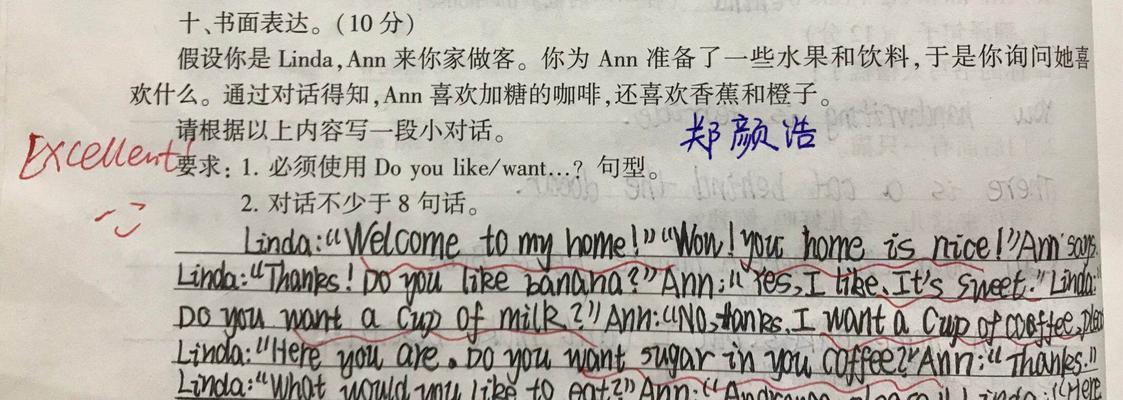 十、书面表达。(10 分)
假设你是 Linda, Ann 来你家做客。你为 Ann 准备了一些水果和饮料,于是你询问她喜
欢什么。通过对话得知, Ann 喜欢加糖的咖啡,还喜欢香蕉和橙子。
请根据以上内容写一段小对话。
郑颜浩
Excellent!
要求: 1. 必须使用 Do you like/want…? 句型。
2. 对话不少于 8 句话。
Linda:“Welcome to my home!”“Wow! you home is nice!”Ann says.
Linda:“Thanks! Do you like banana?”Ann:“Yes, I like. It's sweet.”Linda:“
Do you want a cup of milk?”Ann:“No, thanks. I want a cup of coffee,
Linda:“Here you are. Do you want sugar in you coffee?”Ann:“Thanks.”
Linda:“What would you like to eat?”Ann:“ please.” Linda:“Here